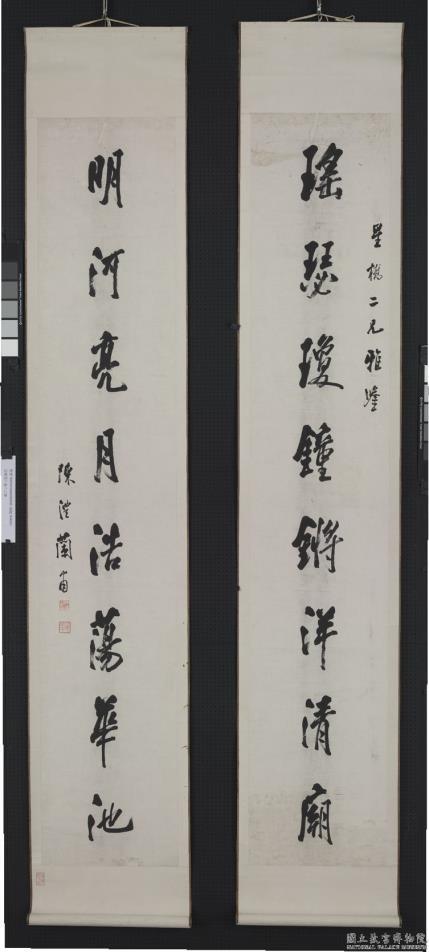 星槎二兄雅鑒
瑤瑟瓊鐘鏘洋清廟
明河亮月浩蕩華池
陳澧蘭甫
國立故宮博物院
NATIONAL PALACE MUSEUM